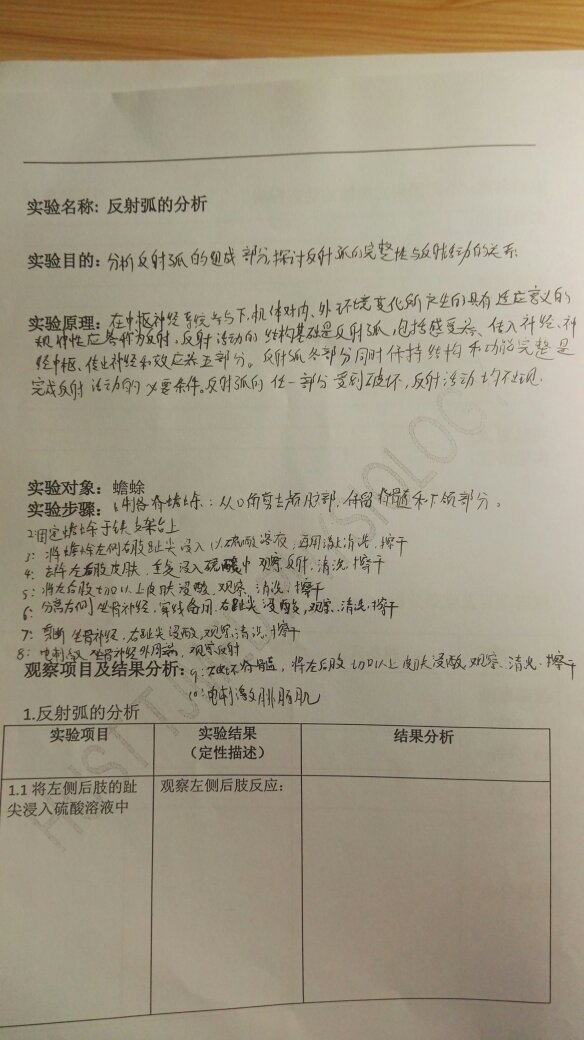 实验名称: 反射弧的分析
实验目的: 分析反射弧的组成部分,探讨反射弧的完整性与反射活动的关系
实验原理: 在中枢神经系统参与下,机体对内、外环境变化所产生的具有适应意义的
规律性应答称为反射,反射活动的结构基础是反射弧,包括感受器、传入神经、神
经中枢、传出神经和效应器五部分。反射弧各部分同时保持结构和功能完整是
完成反射活动的必要条件。反射弧的任一部分受到破坏,反射活动均不出现.
实验对象: 蟾蜍
实验步骤: 1.制备脊蟾蜍: 从口角剪去颅脑部,保留脊髓和下颌部分。
2:固定蟾蜍于铁支架台上
3: 将蟾蜍左侧后肢趾尖浸入1%硫酸溶液,再用清水清洗.擦干
4: 去除左后肢皮肤,重复浸入硫酸中 观察反射.清洗.擦干
5: 将左后肢切口以上皮肤浸酸、观察、清洗.擦干
6: 分离右侧坐骨神经,穿线备用.右趾尖浸酸,观察.清洗.擦干
7: 剪断坐骨神经.右趾尖浸酸,观察.清洗.擦干
8: 电刺激坐骨神经外周端,观察反射
观察项目及结果分析: 9: 破坏脊髓,将左后肢切口以上皮肤浸酸.观察、清洗.擦干
10: 电刺激腓肠肌
1.反射弧的分析
实验项目 实验结果 结果分析
(定性描述)
1.1 将左侧后肢的趾 观察左侧后肢反应:
尖浸入硫酸溶液中